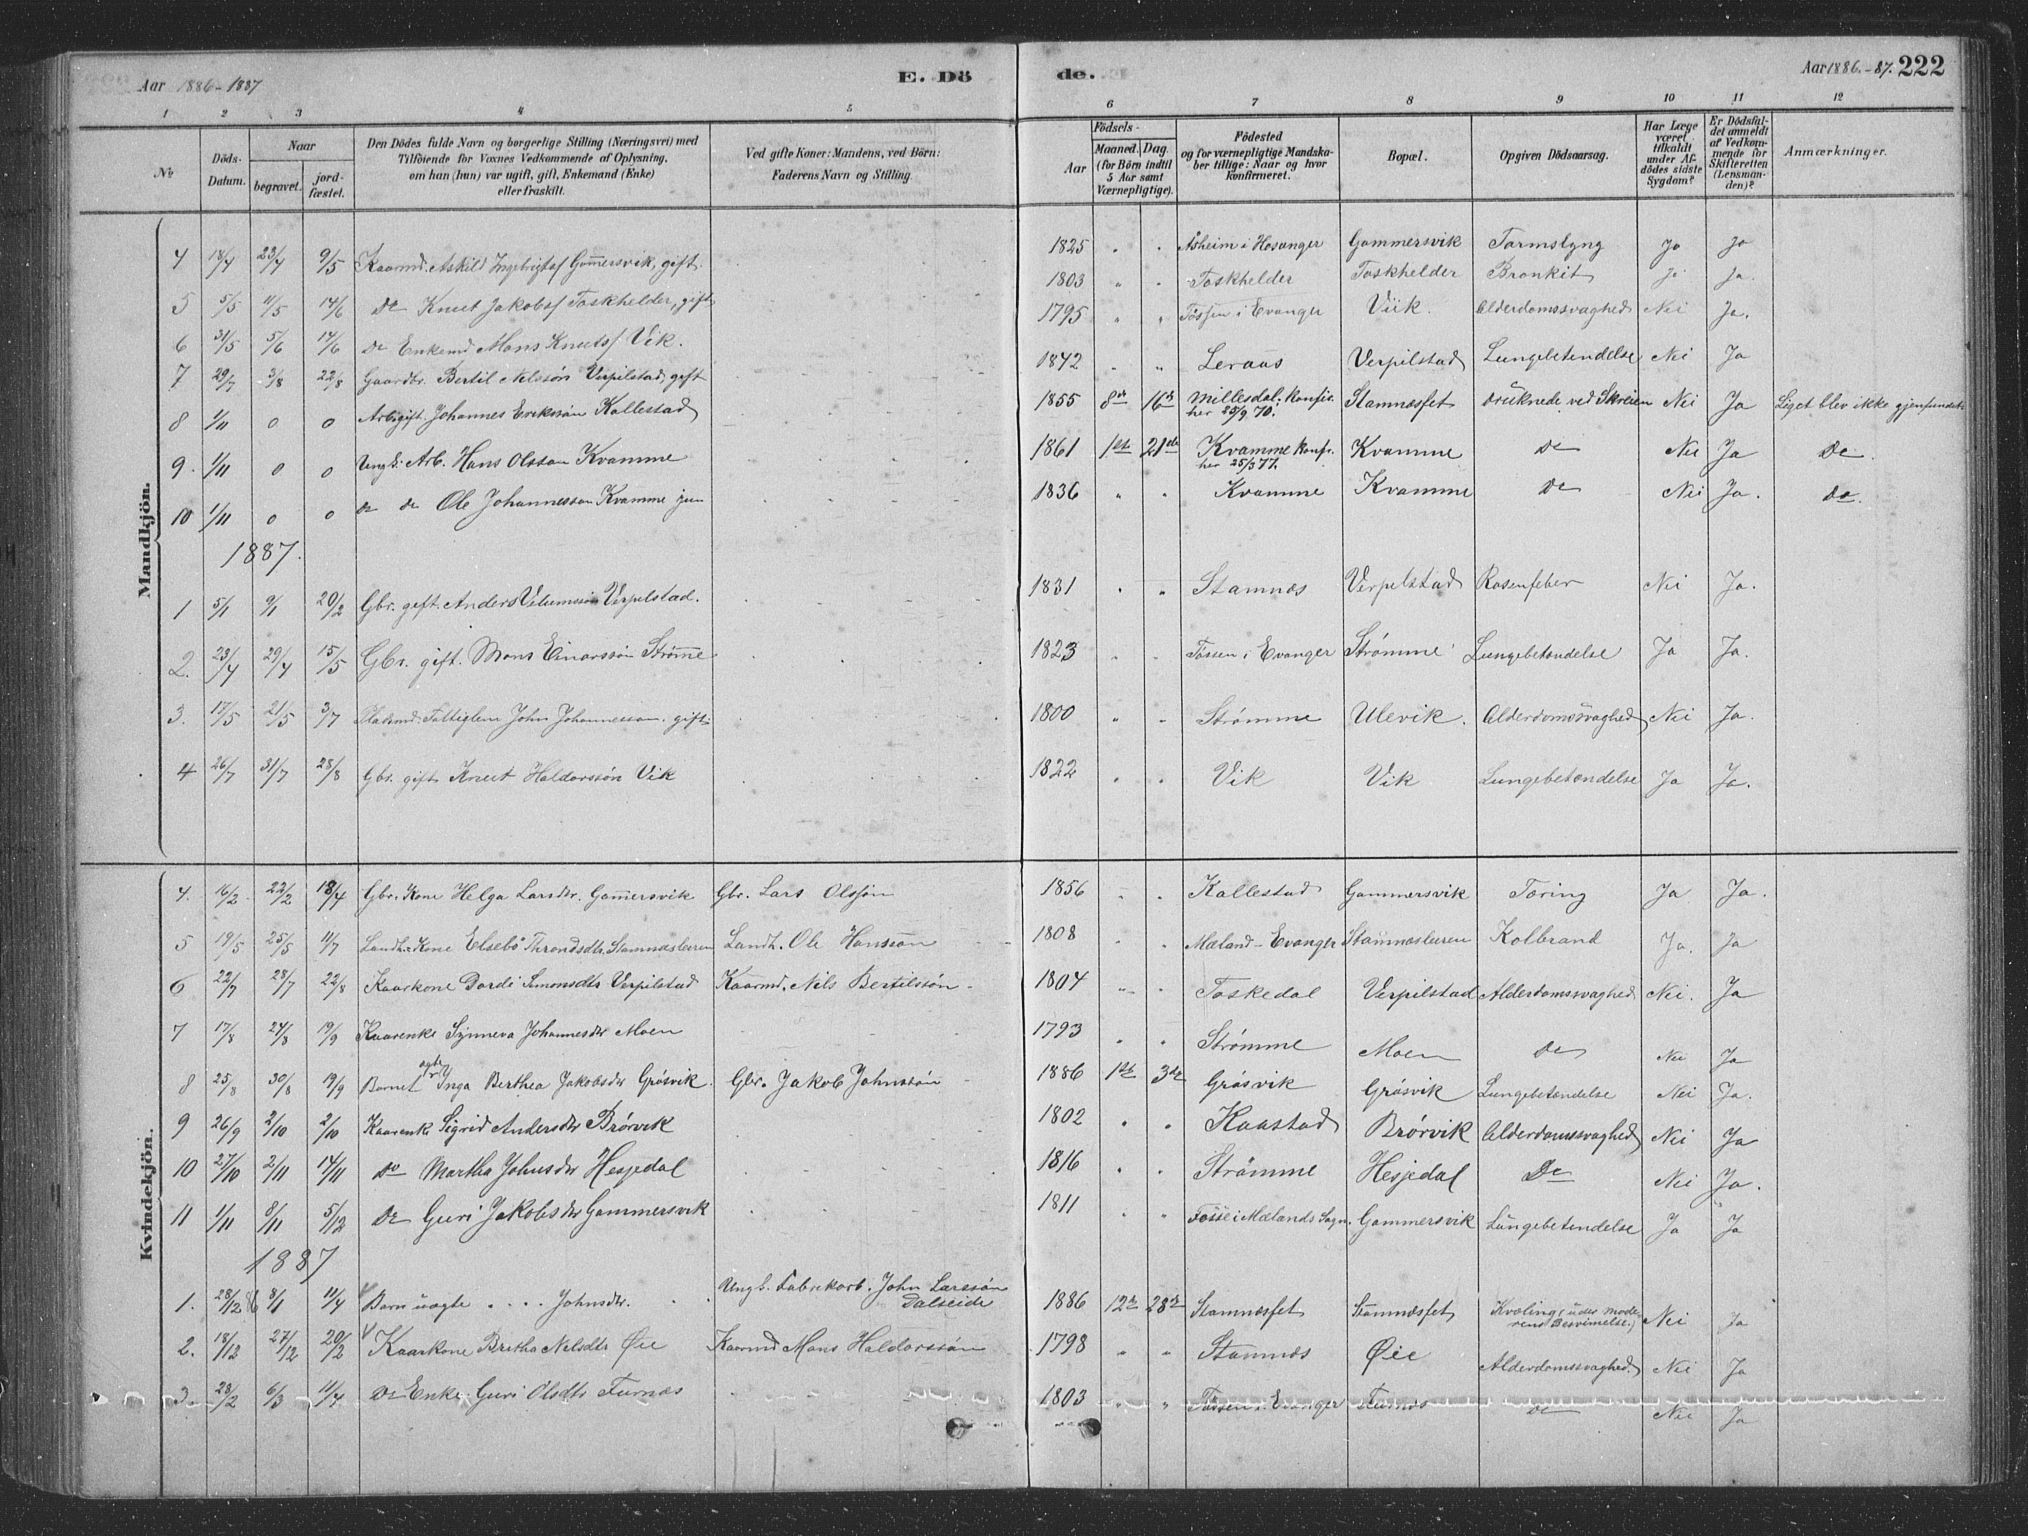 Aar 1886-1887 E. Dö de. Aar 1886.-87. 222
1 2 3 4 5 6 7 8 9 10 11 12
№
Döds-Datum.
Naar
begravet.
jord-fæstet.
Den Dödes fulde Navn og borgerlige Stilling (Næringsvei) med
Tilföiende for Voxnes Vedkommende af Oplysning,
om han (hun) var ugift, gift, Enkemand (Enke)
eller fraskilt.
Ved gifte Koner: Mandens, ved Börn:
Faderens Navn og Stilling.
Födsels-
Aar
Maaned. Dag.
(for Börn indtil
5 Aar samt
Værnepligtige).
Födested
og for værnepligtige Mandska-
ber tillige: Naar og hvor
konfirmeret.
Bopæl.
Opgiven Dödsaarsag.
Har Læge
været
tilkaldt
under Af-
dödes sidste
Sygdom?
Er Dödsfal-
det anmeldt
af Vedkom-
mende for
Skifteretten
(Lensman-
den)?
Anmærkninger.
Mandkjön.
4 18/4 23/4 9/5 Kaarmd. Askild Ingebrigtsf Gammersvik, gift. 1825 " " Åsheim i Hosanger Gammersvik Tarmslyng Ja Ja
5 5/5 11/5 14/6 Do Knut Jakobsf Toskhelder, gift 1803 " " Toskhelder Toskhelder Bronkit Ja Ja.
6 31/5 5/6 14/6 Do Enkemd Mons Knutsf Vik. 1795 " " Fössen i Evanger Viik. Alderdomssvaghed Nei Ja.
7 29/7 3/8 22/8 Gaardbr. Bertil Nilssön Verpilstad, gift 1842 " " Leraas Verpilstad Lungebetendelse Nei Ja
8 1/11 0 0 Arb. gift. Johannes Erikssön Kallestad 1855 8de 16de Millesdal. Konfir. her 25/9 70. Stamnæsfet Druknede ved Skreien Nei Ja Liget blev ikke gjenfundet.
9. 1/11 0 0 Ungk. Arb. Hans Olsson Kvamme 1861 1ste 21de Kvamme Konfir. her 25/3 77. Kvamme Do Nei Ja Do
10 1/11 0 0 Do Do Ole Johannesson Kvamme jun 1836 " " Kvamme Kvamme Do Nei Ja. Do.
1887.
1 5/1 9/1 20/2 Gbr. gift. Anders Verpilstad. 1831 " " Stamnæs Verpelstad Rosenfeber Nei Ja.
2. 23/4 29/4 15/5 Gbr. gift. Mons Einarssön Strömme 1823 " " Fossen i Evanger Strömme Lungebetændelse Ja Ja.
3. 15/5 21/5 3/7 Pladsmd. Fattiglem John Johannesson. gift. 1800 " " Strömme Ulevik. Alderdomssvaghed Nei Ja.
4 26/7 31/7 28/8 Gbr. gift Knut Haldorssön Vik 1822 " " Vik Vik Lungebetændelse Ja Ja.
Kvindekjön.
4. 16/2 22/2 18/4 Gbr. Kone Helga Larsdtr. Gammersvik Gbr. Lars Olssön 1856 " " Kallestad Gammersvik Tæring Ja Ja.
5 19/5 25/5 11/7 Landh. Kone Elsebö Throndsdtr. Stamnæsleeren Landh. Ole Hanssön 1808 " " Mæland - Evanger Stamnæsleeren Kolbrand Ja. Ja
6 22/7 28/7 22/8 Kaarkone Dordi Simonsdtr Verpilstad Kaarmd. Nils Bertilssön 1804 " " Toskedal Verpilstad Alderdomssvaghed Nei. Ja
7 17/8 24/8 19/9 Kaarenke Synneva Johannesdtr Moen 1793 " " Strömme Moen Do Nei Ja
8 25/8 30/8 19/9 Barnet ægte Inga Berthea Jakobsdtr Gråsvik Gbr. Jakob Johnssön 1886 1ste 3die Gråsvik Gråsvik Lungebetændelse Nei Ja.
9 26/9 2/10 2/10 Kaarenke Sigrid Andersdtr Brörvik 1802 " " Kaastad Brörvik Alderdomssvaghed Nei Ja
10 27/10 2/11 14/11 Do Martha Johnsdtr Hesjedal 1816 " " Strömme Hesjedal Do Nei Ja.
11 1/11 8/11 5/12 Do Guri Jakobsdtr Gammersvik 1811 " " Fosse i Mælands Sogn. Gammersvik Lungebetendelse Ja Ja
1887
1. 28/12 86 8/1 11/4 Barn uægte .... Johnsdtr. Ungk. Fabrikarb. John Larssön Dalseide 1886 12te 28de Stamnæsfet Stamnæsfet Kvæling (under Mode-rens Besvimelse.) Nei Ja
2. 18/12 27/12 20/2 Kaarkone Britha Nilsdtr Öie Kaarmd Mons Haldorssön 1798 " " Stamnæs Öie Alderdomssvaghed Nei Ja
3. 28/2 6/3 11/4 Do Enke Guri Olsdtr Furnæs 1803 " " Fossen i Evanger Furnæs Do Nei Ja